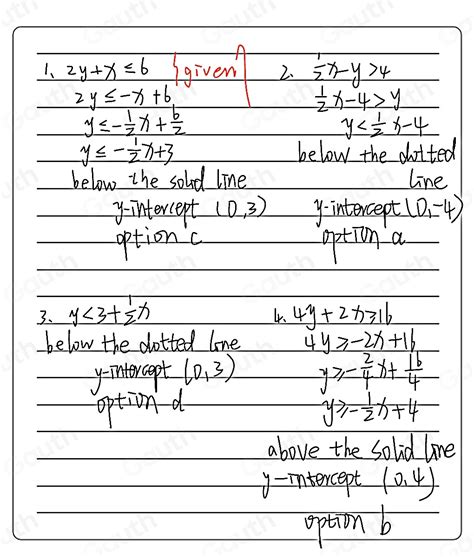 1. 2y+x≤6 {given}
2y≤-x+6
y≤-1/2x+6/2
y≤-1/2x+3
below the solid line
y-intercept (0,3)
option c
2. 1/2x-y>4
1/2x-4>y
y<1/2x-4
below the dotted
line
y-intercept (0,-4)
option a
3. y<3+1/2x
below the dotted line
y-intercept (0,3)
option d
4. 4y+2x≥16
4y≥-2x+16
y≥-2/4x+16/4
y≥-1/2x+4
above the solid line
y-intercept (0,4)
option b
Gauth